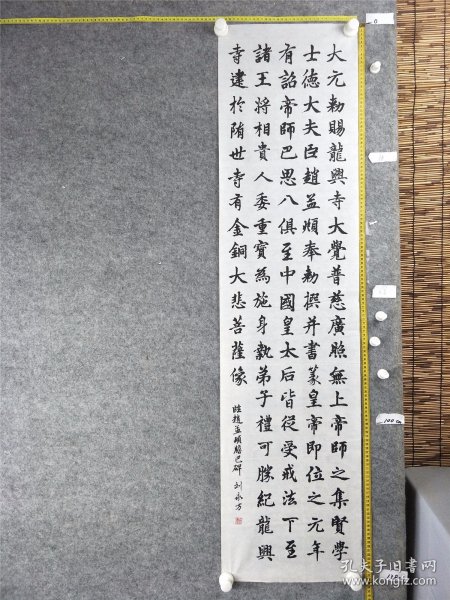 大元勅賜龍興寺大覺普慈廣照無上帝師之集賢學
士德大夫臣趙孟頫奉勅撰并書篆皇帝即位之元年
有詔帝師巴思八俱至中國皇太后皆從受戒法下至
諸王將相貴人委重寶為施身執弟子禮可勝紀龍興
寺建於隋世寺有金銅大悲菩薩像
臨趙孟頫膽巴碑 刘永方
0
100cm
孔夫子旧书网
www.kongfz.com